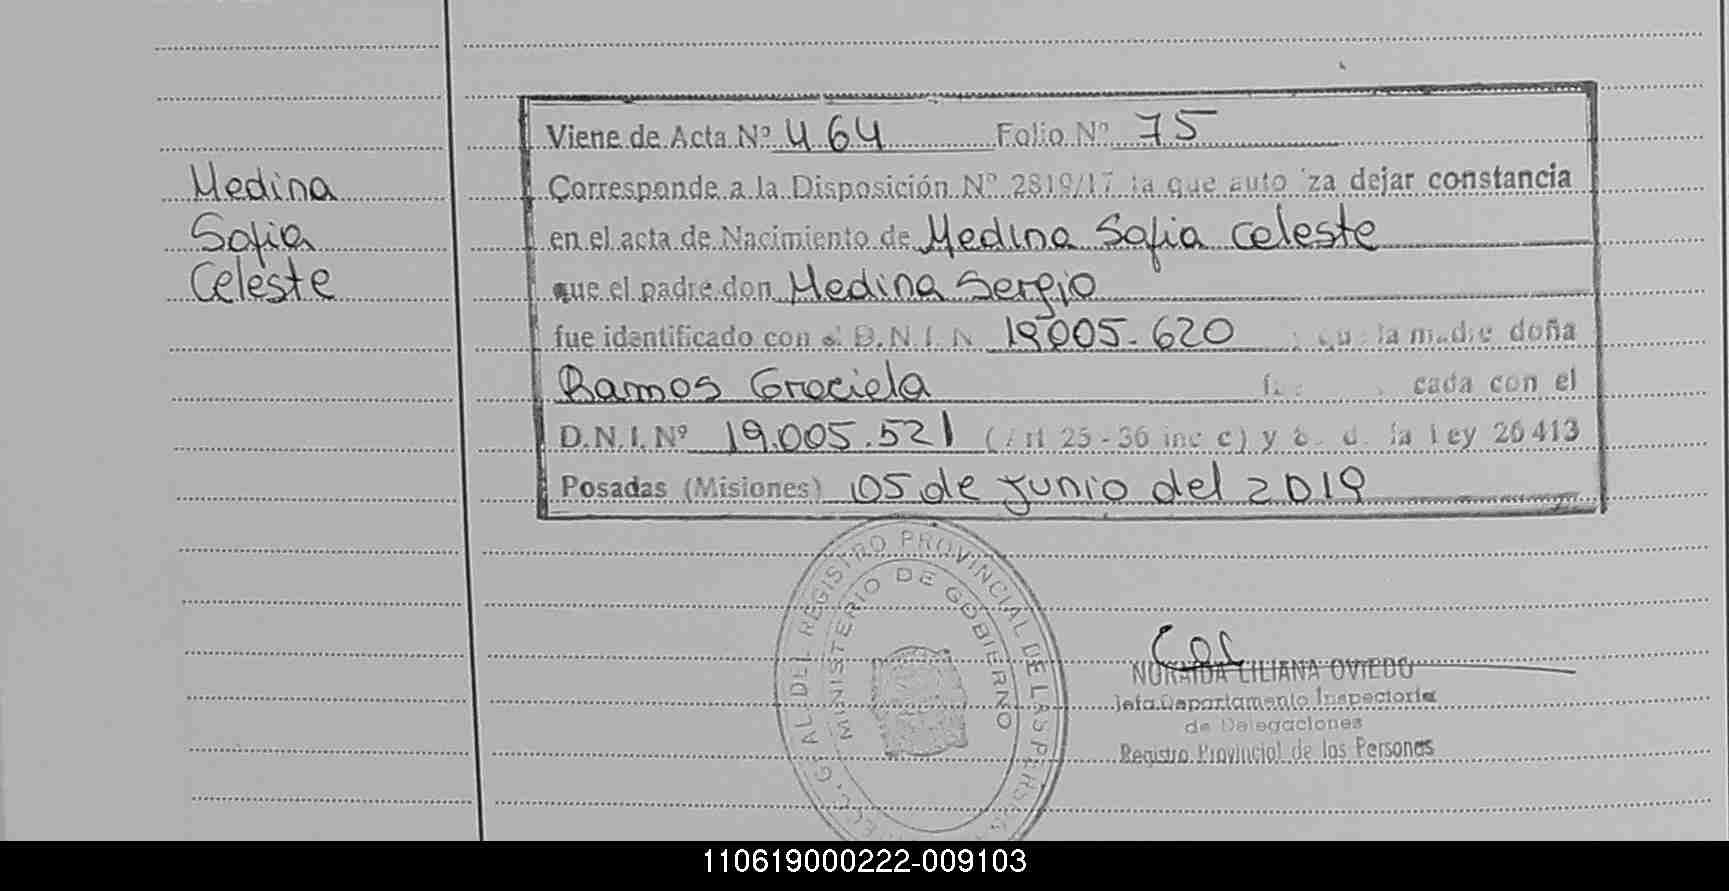 Viene de Acta Nº 464 Folio Nº 75
Medina
Corresponde a la Disposición Nº 2819/17 la que auto iza dejar constancia
Sofia
en el acta de Nacimiento de Medina Sofia Celeste
Celeste
que el padre don Medina Sergio
fue identificado con el D.N.I. N 19.005.620 que la madre doña
Ramos Graciela cada con el
D.N.I. Nº 19.005.521 (Art 25-36 inc c) y la Ley 26413
Posadas (Misiones) 05 de junio del 2019
GRAL. DEL REGISTRO PROVINCIAL DE LAS PERSONAS
MINISTERIO DE GOBIERNO
NORAIDA LILIANA OVIEDO
Jefa Departamento Inspectoria
de Delegaciones
Registro Provincial de las Personas
110619000222-009103